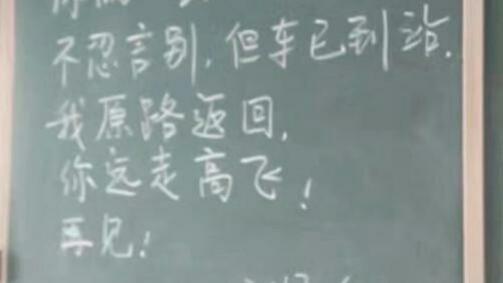 不忍言别,但车已到站.
我原路返回,
你远走高飞!
再见!